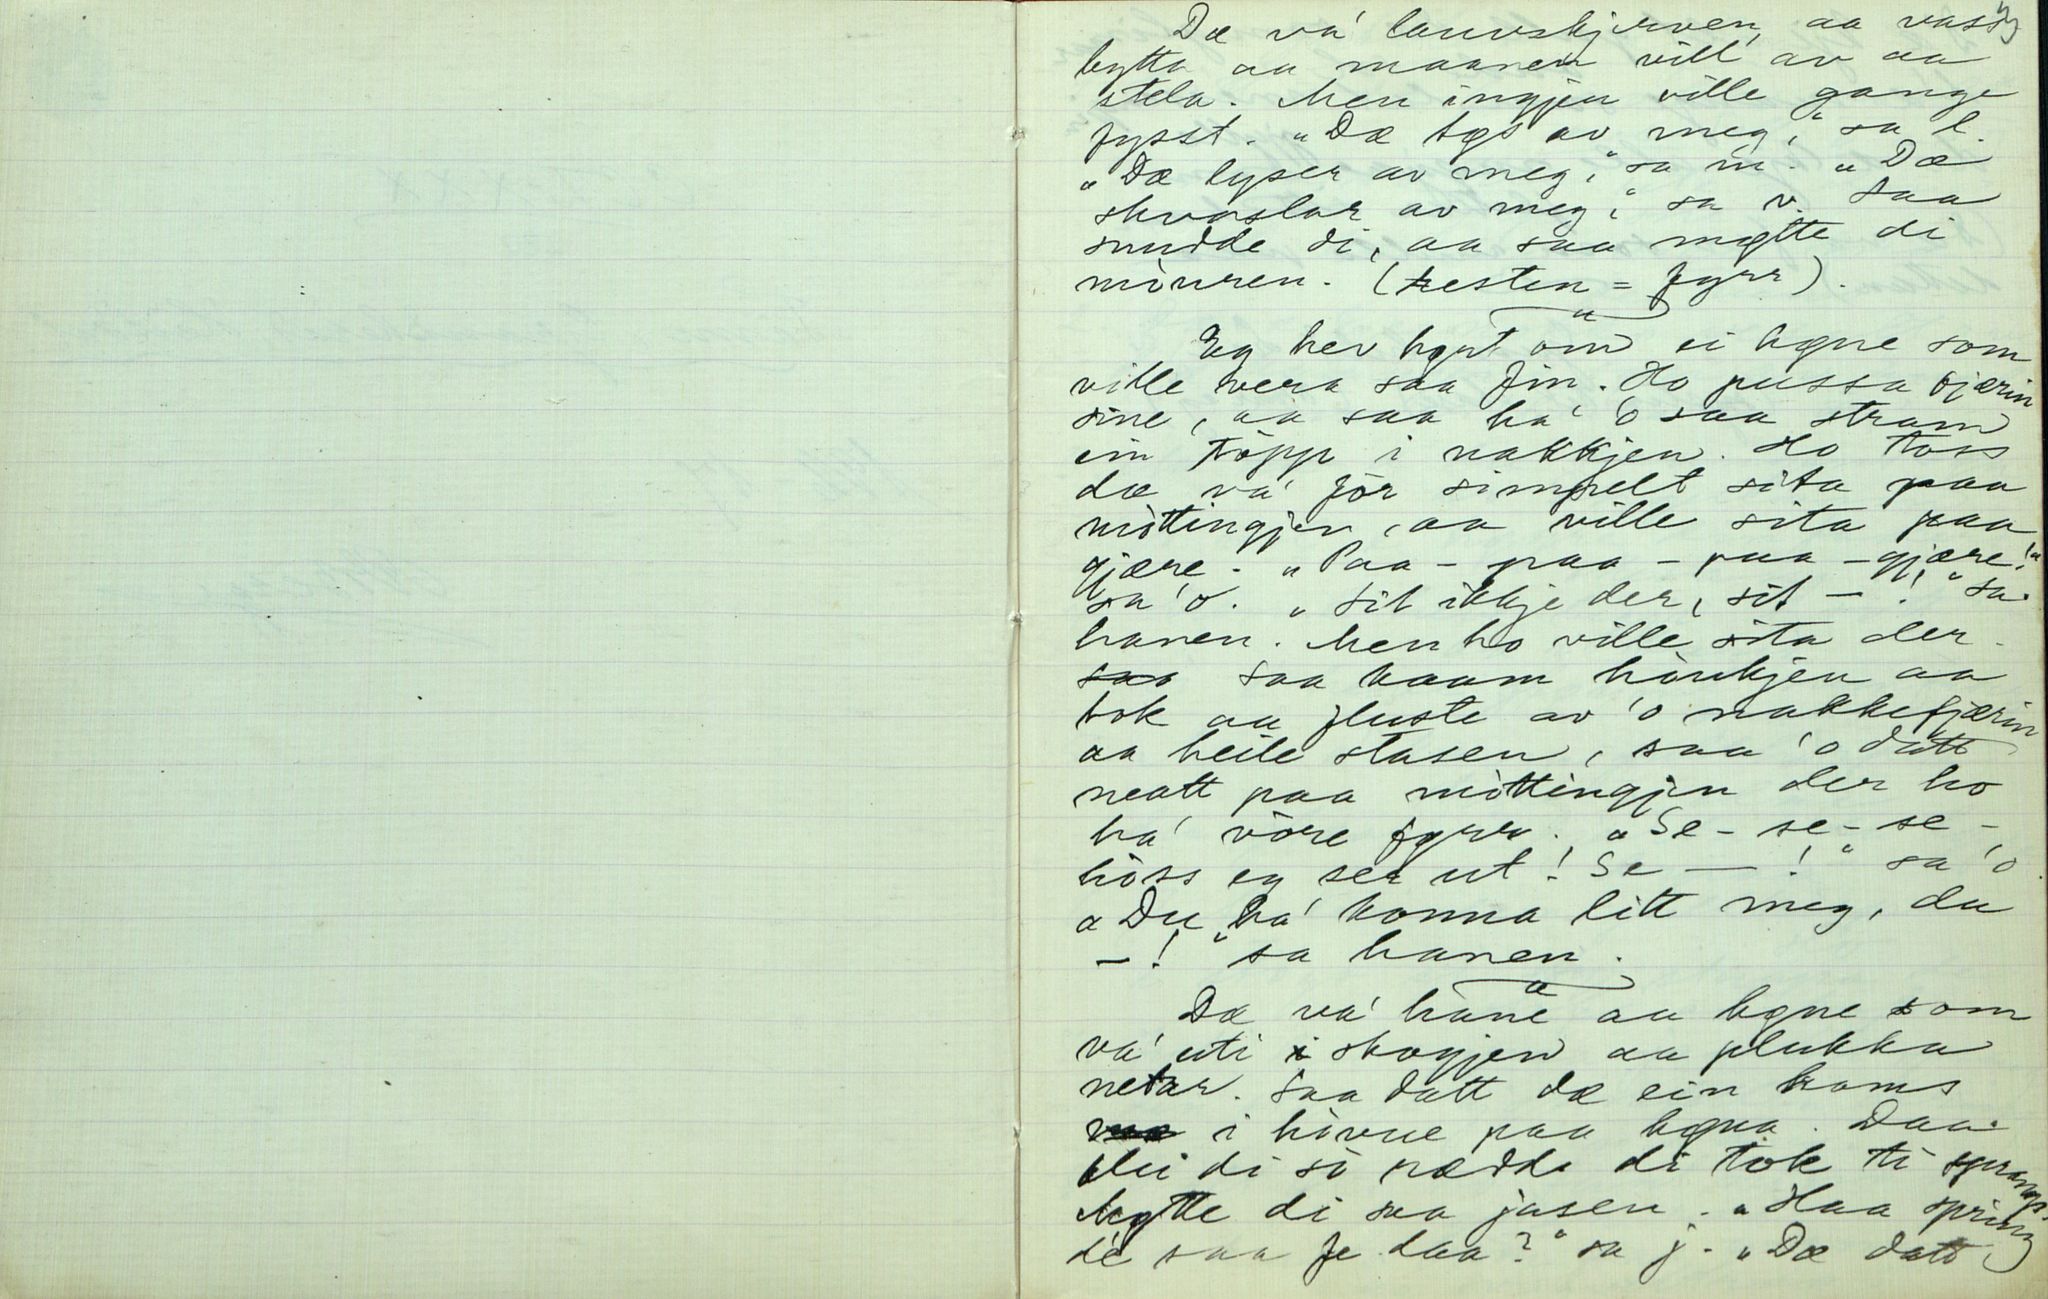 Dæ va' lauvskjerven, aa vass-
bytta aa maanen vill av aa
stela. Men ingjen ville gange
fysst. "Dæ tøs av meg," sa l.
"Dæ lyser av meg," sa m. "Dæ
skvaslar av meg," sa v. Saa
snudde di, aa saa møtte di
mòuren. (Resten = fyrr).
Eg hev høyrt om ei høne som
ville vera saa fin. Ho pussa fjærin
sine, aa saa ha' 'o saa stram
ein tòpp i nakkjen. Ho toss
dæ va' fòr simpelt sita paa
mòttingjen, aa ville sita paa
gjære. "Paa - paa - paa - gjære!"
sa 'o. "Sit ikkje der, sit —!" sa
hanen. Men ho ville sita der.
Saa kaam haukjen aa
tok aa fluste av 'o nakkefjærin
aa heile stasen, saa 'o datt
neatt paa mòttingjen der ho
ha' vòre fyrr. "Se - se - se -
hòss eg ser ut! Se —!" sa 'o.
"Du ha' konna litt meg, du
—!" sa hanen.
Dæ va' hane aa høne som
va' uti skogjen aa plukka
netar. Saa datt dæ ein kams
i hòvue paa høna. Daa
blei di so rædde di tok ti sprangs.
Møtte di saa jasen. "Haa spring
de saa fe daa?" sa j. "Dæ datt